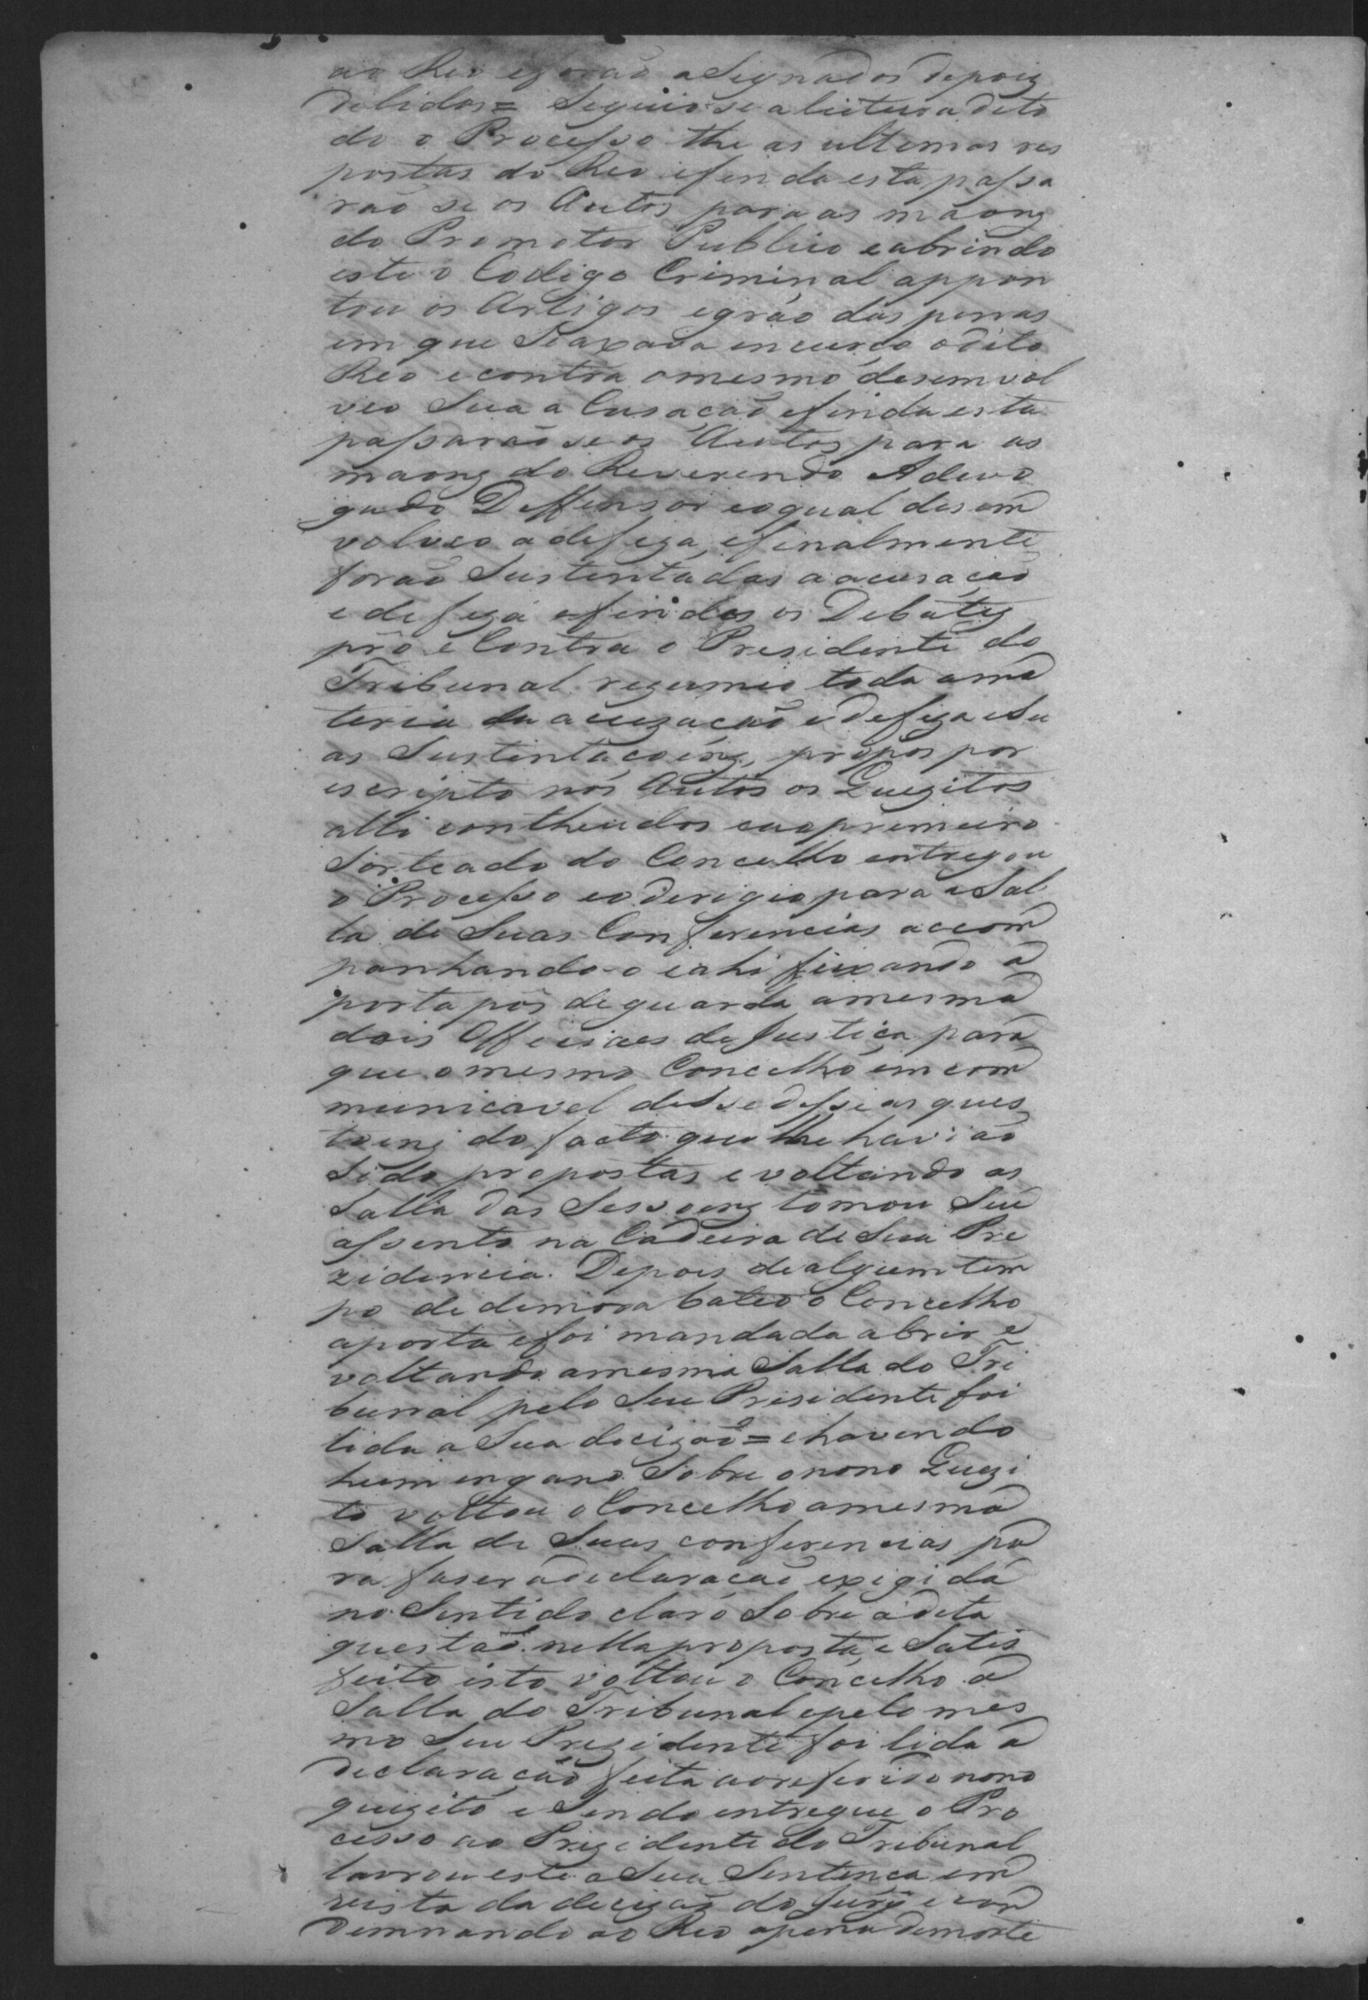 ao Reo e forão aSignados depois
delidos = Seguio se a leitura deto
do o Processo the as ultemas res
postas do Reo efinda esta passa
rão se os Autos para as maons
do Promotor Publico e abrindo
este o Codigo Criminal appon
tou os Artigos egráo das pennas
em que Seaxava encurço odito
Reo e contra omesmo desemvol
veo Sua a Cusação efinda esta
passarão se os Autos para as
maons do Reverendo Advo
gado Deffensor eoqual desem
volveo a defeza, efinalmente
forão Sustentadas a acusação
e defeza efindos os Debates
pró e Contra o Presidente do
Tribunal rezumio toda ama
teria da acuzação e defeza e Su
as Sustentaçoens, propos por
escripto nos Autos os Quezitos
alli contheudos eaoprimeiro
Sorteado do Concelho entregou
o Processo eo derigio para a Sal
la de Suas Conferencias acom
panhando-o eahi feixando a
porta pôs de guarda amesma
dois Officiaes de Justiça para
que omesmo Concelho emcom
municavel desse as ques
toens do facto que lhe havião
Sido propostas e voltando as
Salla das Sessoens tomou Seu
assento na Cadeira de Sua Pre
zidencia. Depois dealgum tem
po de demora bateo o Concelho
aporta efoi mandada abrir e
voltando amesma Salla do Tri
bunal pelo Seu Presidente foi
lida a Sua decizão = ehavendo
hum engano Sobre onono Quezi
to voltou o Concelho amesma
Salla de Suas conferencias pa
ra faser adeclaração exigida
no Sentido claro Sobre adita
questão nella proposta, e Satis
feito isto voltou o Concelho a
Salla do Tribunal epelo mes
mo Seu Prezidente foi lida a
declaração feita aoreferido nono
quezito e Sendo entregue o Pro
cesso ao Prezidente do Tribunal
lavrou este a Sua Sentença em
vista da decizão do Jury e con
demnando ao Reo apena demorte